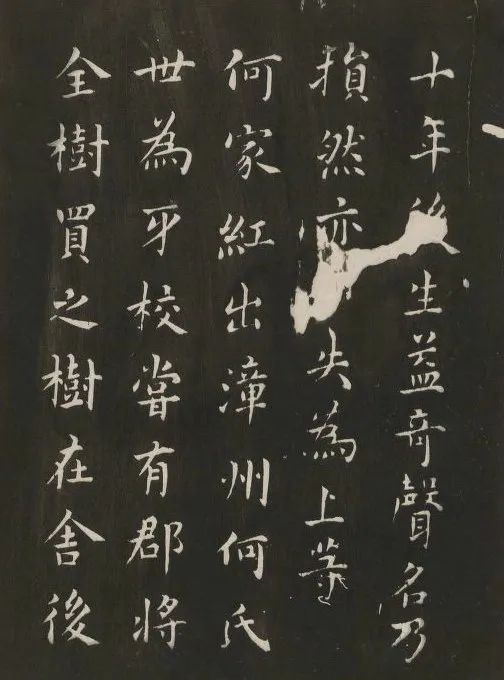 十年後生益奇聲名乃
損然亦失為上等
何家紅出漳州何氏
世為牙校嘗有郡將
全樹買之樹在舍後